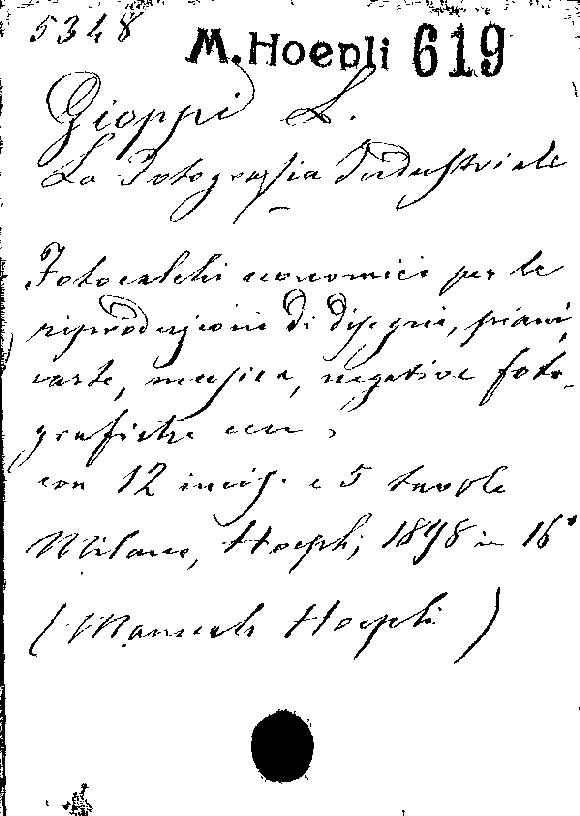 5348
M. Hoepli 619
Gioppi L.
La Fotografia Industriale
Fotocalchi economici per le
riproduzioni di disegni, piani,
carte, musica, negative foto-
grafiche ecc.
con 12 incis. e 5 tavole
Milano, Hoepli, 1898 in 16°
(Manuali Hoepli)